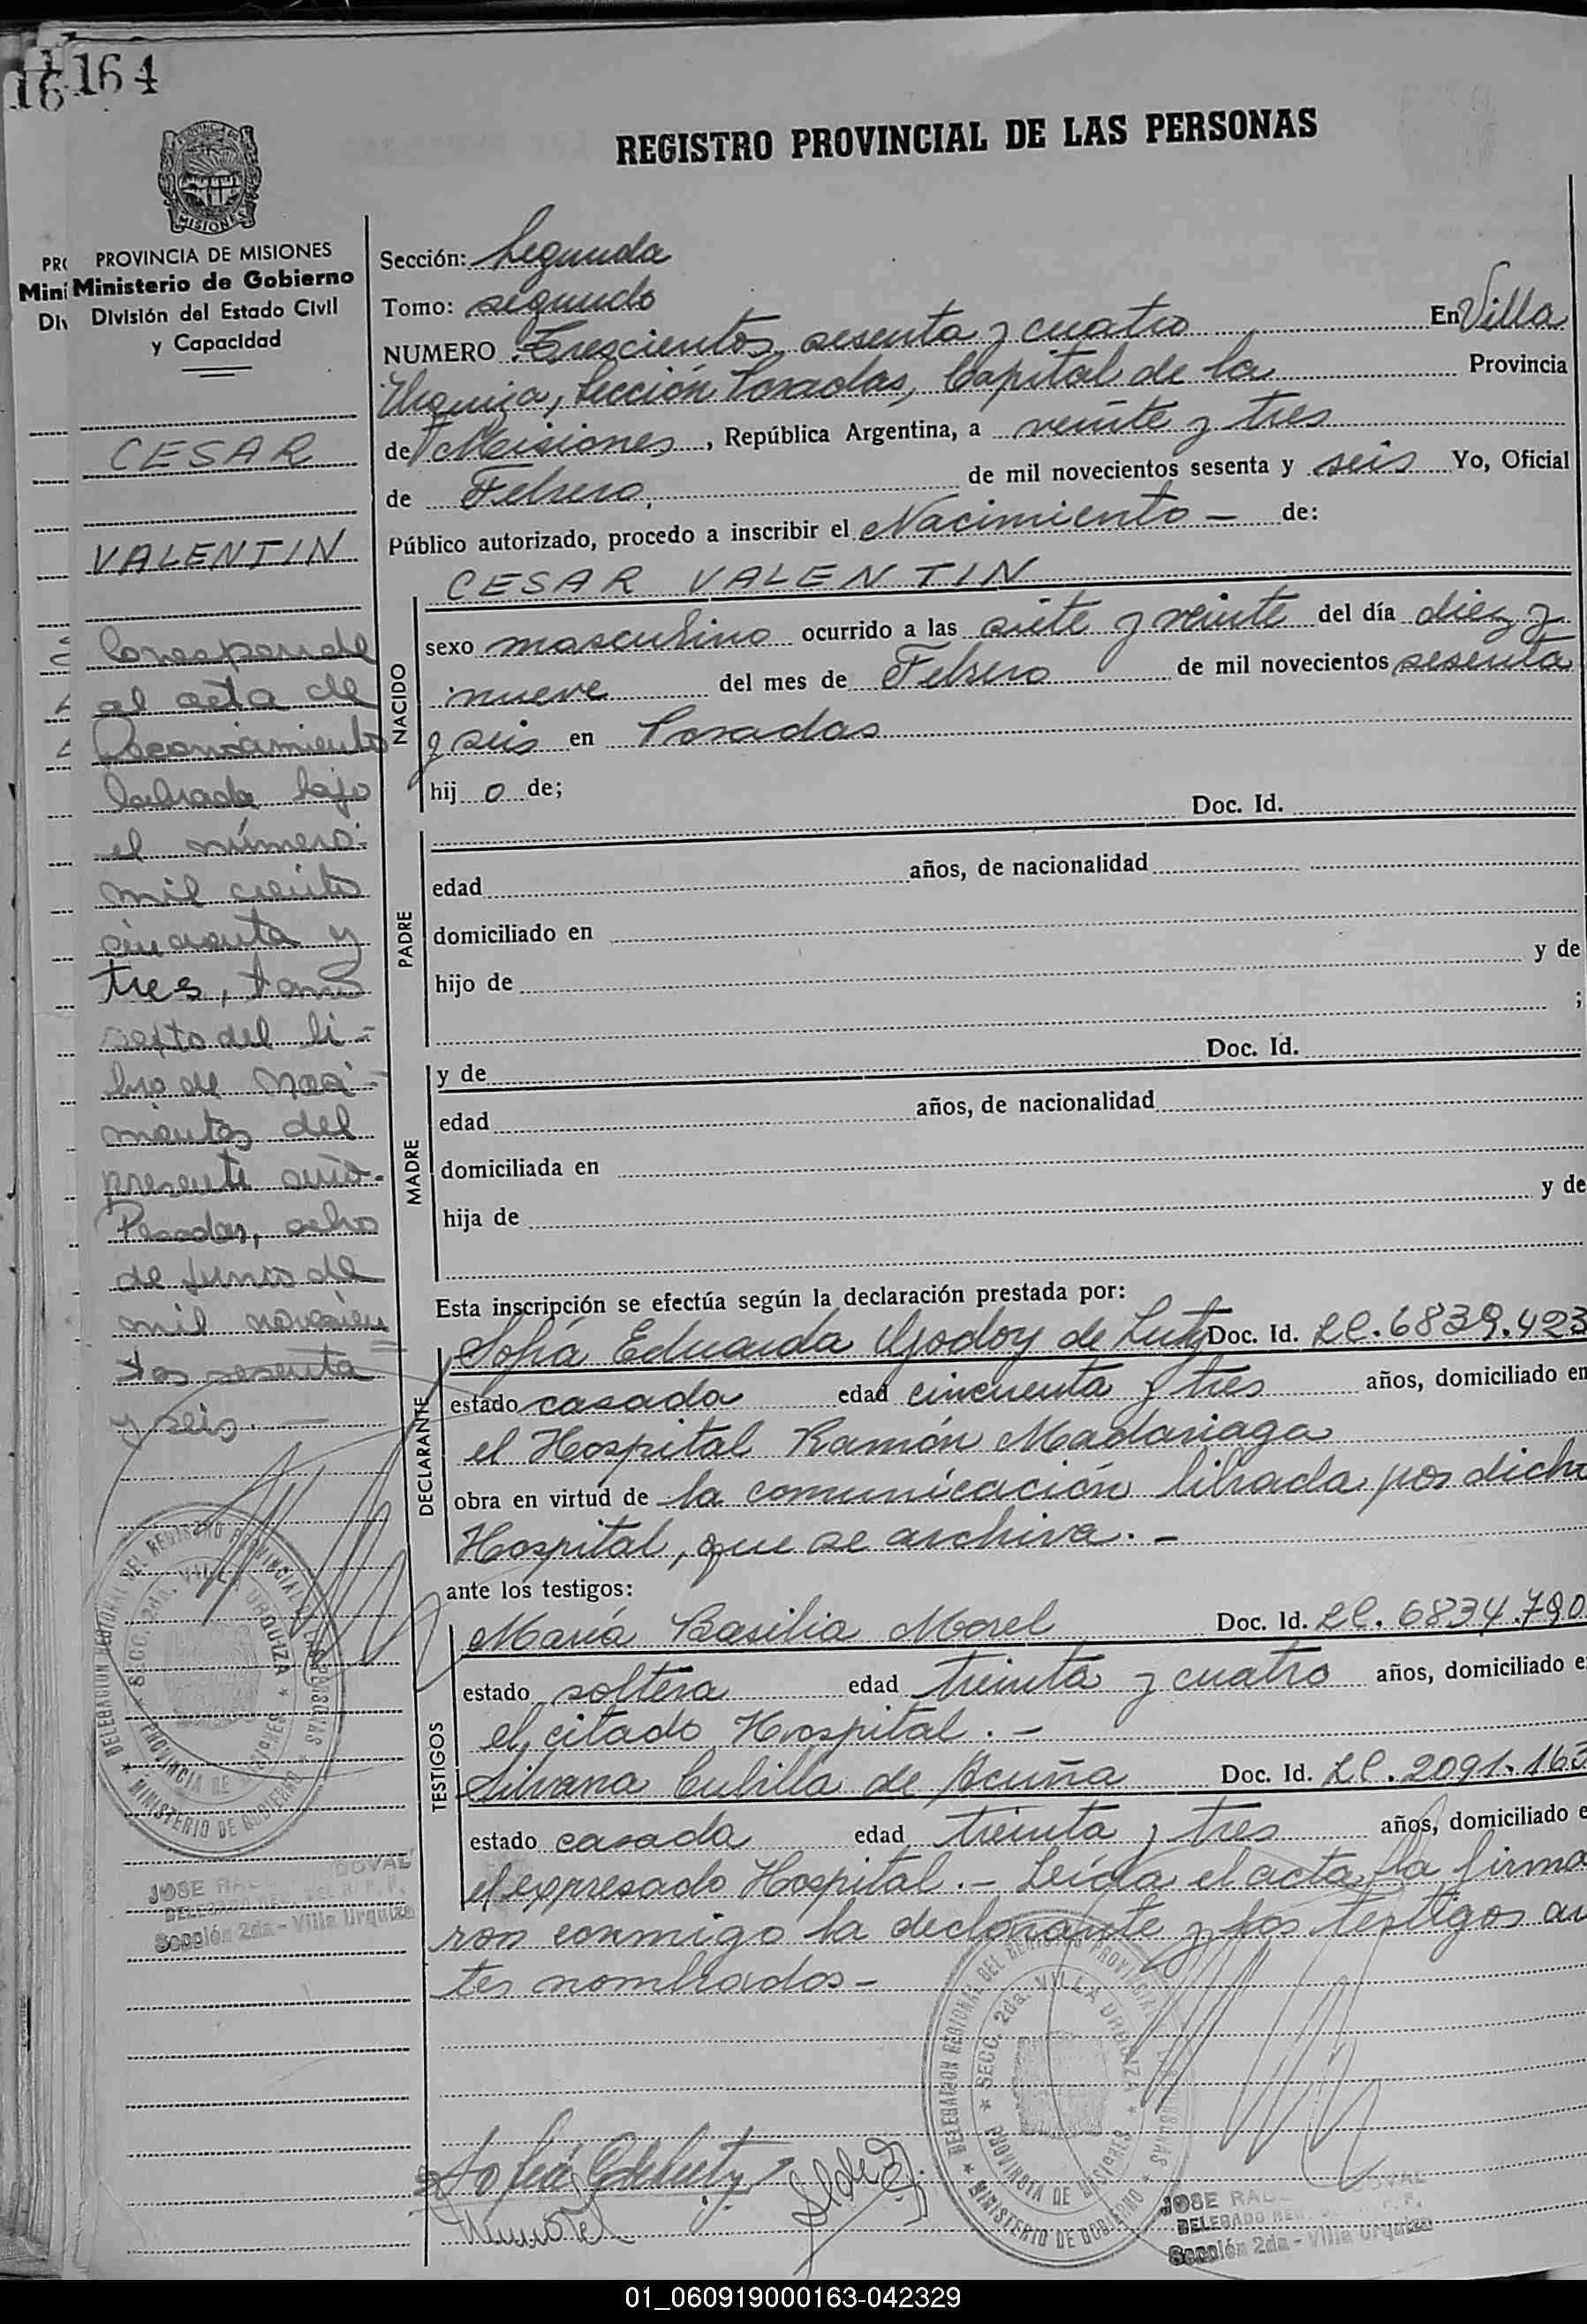 16 164
REGISTRO PROVINCIAL DE LAS PERSONAS
MISIONES
PROVINCIA DE MISIONES
Ministerio de Gobierno
División del Estado Civil
y Capacidad
CESAR
VALENTIN
Corresponde
al acta de
Reconocimiento
labrada bajo
el número:
mil ciento
cincuenta y
tres, tomo
sexto del li-
bro de Naci-
mientos del
presente año.
Posadas, ocho
de junio de
mil novecien
tos sesenta
y seis. —
DELEGACION REGIONAL DEL REGISTRO PROVINCIAL DE LAS PERSONAS
SECC. 2da. VILLA URQUIZA
PROVINCIA DE MISIONES
MINISTERIO DE GOBIERNO
JOSE RAUL DOVAL
Sección 2da - Villa Urquiza
Sección: Segunda
Tomo: segundo
NUMERO Trescientos sesenta y cuatro En Villa
Urquiza, Sección Posadas, Capital de la Provincia
de Misiones, República Argentina, a veinte y tres
de Febrero, de mil novecientos sesenta y seis Yo, Oficial
Público autorizado, procedo a inscribir el Nacimiento — de:
NACIDO
CESAR VALENTIN
sexo masculino ocurrido a las siete y veinte del día diez y
nueve del mes de Febrero de mil novecientos sesenta
y seis en Posadas
hij o de;
PADRE
Doc. Id.
edad años, de nacionalidad
domiciliado en
hijo de y de
;
MADRE
y de Doc. Id.
edad años, de nacionalidad
domiciliada en
hija de y de
Esta inscripción se efectúa según la declaración prestada por:
DECLARANTE
Sofía Eduarda Godoy de Lutz Doc. Id. LC. 6839.423
estado casada edad cincuenta y tres años, domiciliado en
el Hospital Ramón Madariaga
obra en virtud de la comunicación librada por dicho
Hospital, que se archiva. —
ante los testigos:
TESTIGOS
María Basilia Morel Doc. Id. LC. 6834.790
estado soltera edad treinta y cuatro años, domiciliado e
el citado Hospital. —
Silvana Cubilla de Acuña Doc. Id. LC. 2091.163
estado casada edad treinta y tres años, domiciliado e
el expresado Hospital. — Leída el acta, la firma
ron conmigo la declarante y los testigos an
tes nombrados —
DELEGACION REGIONAL DEL REGISTRO PROVINCIAL DE LAS PERSONAS
SECC. 2da. VILLA URQUIZA
PROVINCIA DE MISIONES
MINISTERIO DE GOBIERNO
JOSE RAUL DOVAL
Sección 2da - Villa Urquiza
01_060919000163-042329